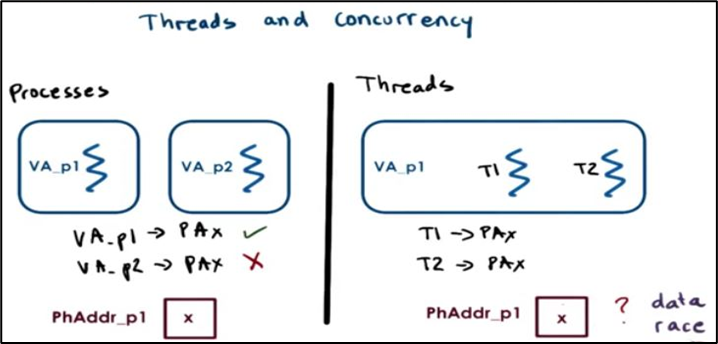 Threads and concurrency
Processes
VA_p1
VA_p2
VA_p1 → PAx ✓
VA_p2 → PAx X
PhAddr_p1
x
Threads
VA_p1
T1
T2
T1 → PAx
T2 → PAx
PhAddr_p1
x
? data
race